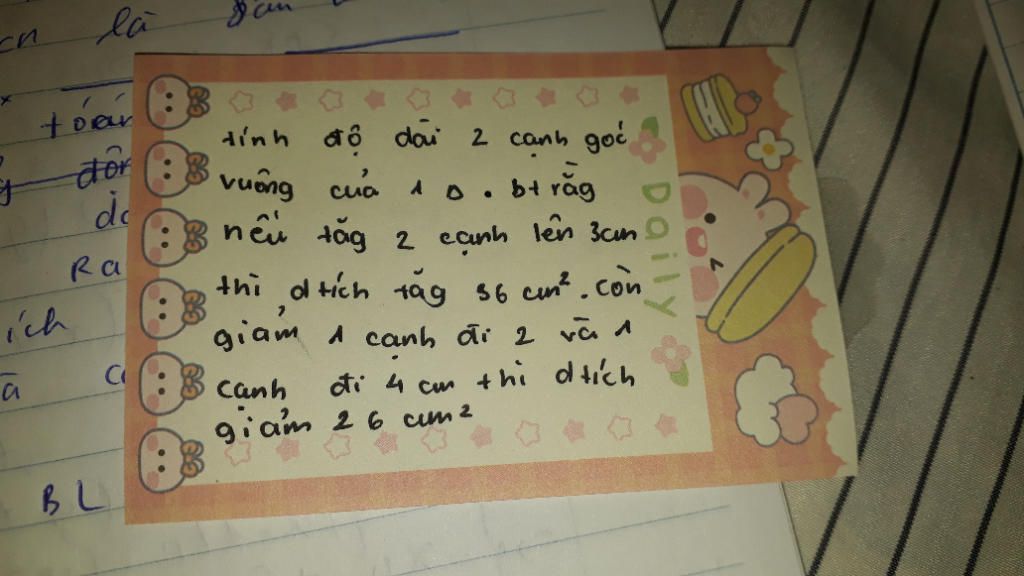 cn là gần
tóán
đôn
dc
Ra
ích
à
BL
tính độ dài 2 cạnh goć
vuông của 1 Δ. bt rằg
nếu tăg 2 cạnh lên 3cm
thì dtích tăg 36 cm². Còn
giảm 1 cạnh đi 2 và 1
cạnh đi 4 cm thì dtích
giảm 26 cm²
Daily